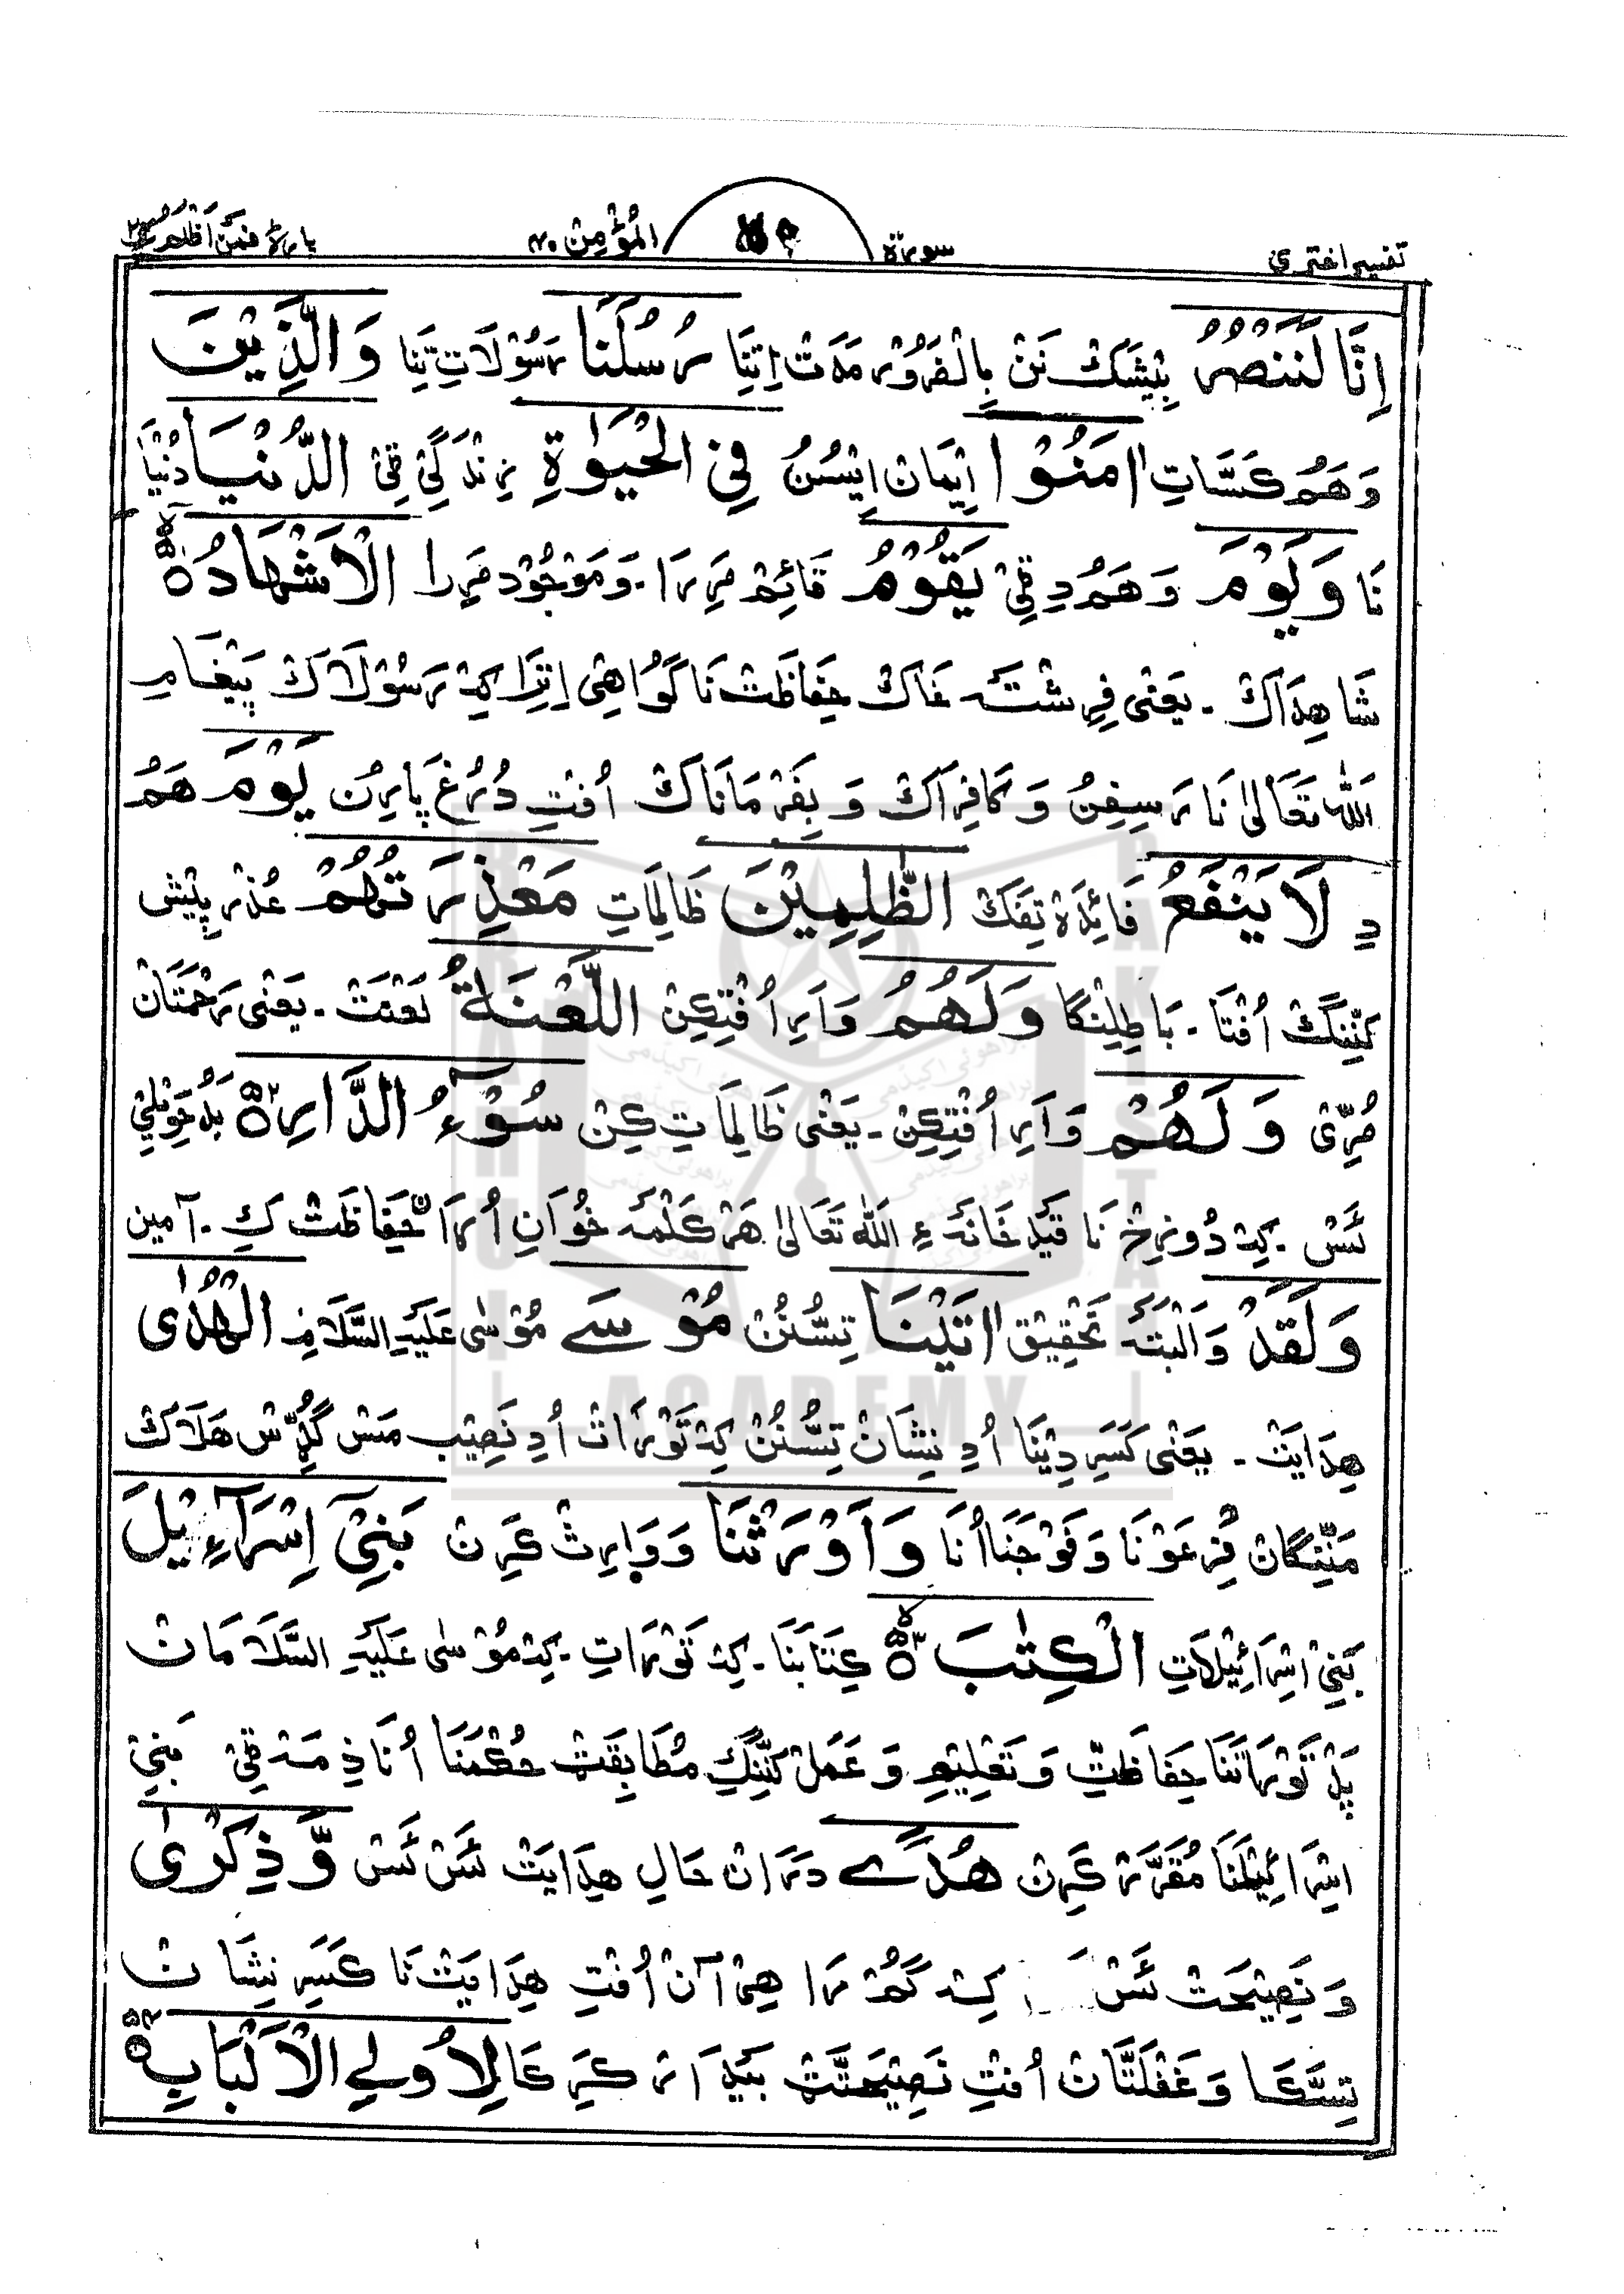 تفسیر اختری سورۃ المؤمن ۴۰ پارہ فمن اظلم
اِنَّا لَنَنْصُرُ بیشک نن بالضرور مدت اِتنا رُسُلَنَا رسولاتِ تینا وَالَّذِیْنَ
وَهم کسّاتِ اٰمَنُوْا ایمان ایسُنُ فِی الْحَیٰوةِ زندگی ٹی الدُّنْیَا دُنیا
نا وَیَوْمَ وَهم دِ ٹی یَقُوْمُ قائم مریرا ۔ و موجود مریرا الْاَشْهَادُ ۵۱
شاهداک ۔ یعنی فرشته غاک حفاظت نا گواهی اِترا کہ رسولاک پیغامِ
الله تعالیٰ نا رسیفن وَ کافراک وَ بفرماناک اُفتِ دُرُغ پارِن یَوْمَ هَمُ
دِ لَا یَنْفَعُ فائده تِفک الظّٰلِمِیْنَ ظالماتِ مَعْذِرَتُهُمْ عذر پیش
کننگ اُفتا ۔ باطلنگا وَلَهُمُ وَ اَرِ اُفتکن اللَّعْنَةُ لعنت ۔ یعنی رحمتان
مُرّی وَلَهُمْ وَ اَرِ اُفتکن ۔ یعنی ظالماتِ کن سُوْٓءُ الدَّارِ ۵۲ بد حویلی
ئس ۔ کہ دُوزخ نا قید خانہ ءِ الله تعالیٰ هر کلمه خوانِ اُرا حفاظت کِ ۔ آمین
وَلَقَدْ وَ البتہ تحقیق اٰتَیْنَا تِسُّنُن مُوْسَے موسٰی علیہ السلام الْهُدٰی
هدایت ۔ یعنی کسر دِینا اُدِ نشان تِسُّنُن کہ تورات اُدِ نصیب مس گُڈّس هلاک
مننگان فرعونا وَ فوجنا اُنا وَاَوْرَثْنَا وَ وارث کرن بَنِیْٓ اِسْرَآءِیْلَ
بنی اسرائیلاتِ الْکِتٰبَ ۵۳ کتابنا ۔ کہ توراتِ ۔ کہ موسٰی علیہ السلامان
پد توراتنا حفاظتِ وَ تعلیمِ وَ عمل کننگِ مطابقت حکمنا اُنا ذِمہ ٹی بنی
اسرائیلنا مقرر کرن هُدًے دران حالِ هدایت ئس ئس وَّذِکْرٰی
وَ نصیحت ئس کہ گمراهی آن اُفتِ هدایت نا کسر نشان
تِسّکا وَ غفلتّان اُفتِ نصیحتّٹ بیدار کرکا لِاُولِی الْاَلْبَابِ ۵۴
BRAHUI
ACADEMY
PAKISTAN